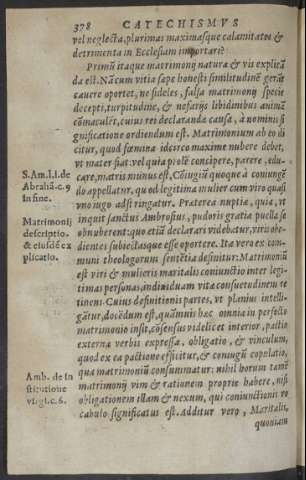 378 CATECHISMVS
vel neglecta, plurimas maximasque calamitates &
detrimenta in Ecclesiam importare?
Primũ itaque matrimonij natura & vis explicã
da est. Nã cum vitia sæpe honesti similitudinẽ gerãt
cauere oportet, ne fideles, falsa matrimonij specie
decepti, turpitudine, & nefarijs libidinibus animã
cõmaculẽt, cuius rei declarandæ causa, à nominis si
gnificatione ordiendum est. Matrimonium ab eo di
citur, quod fœmina idcirco maxime nubere debet,
vt mater fiat: vel quia prolẽ concipere, parere, edu-
care, matris munus est, Cõiugiũ quoque à coniungẽ
do appellatur, quòd legitima mulier cum viro quasi
vno iugo adstringatur. Præterea nuptiæ, quia, vt
inquit sanctus Ambrosius, pudoris gratia puellæ se
obnuberent: quo etiũ declarari videbatur, viris obe-
dientes subiectasque esse oportere. Ita vero ex com-
muni theologorum sentẽtia definitur: Matrimoniũ
est viri & mulieris maritalis coniunctio inter legi-
timas personas, indiuiduam vitæ consuetudinem re
tinens. Cuius definitionis partes, vt planius intelli-
gãtur, docẽdum est, quãmuis hæc omnia in perfecto
matrimonio insit, cõsensus videlicet interior, pactio
externa verbis expressa, obligatio, & vinculum,
quod ex ea pactione efficitur, & coniugũ copulatio,
qua matrimoniũ consummatur: nihil horum tamẽ
matrimonij vim & rationem proprie habere, nisi
obligationem illam & nexum, qui coniunctionis vo
cabulo significatus est. Additur vero, Maritalis,
quoniam
S. Am. l. 1. de
Abrahã. c. 9
in fine.
Matrimonij
descriptio.
& eiusdẽ ex
plicatio.
Amb. de in
stitutione
virgi. c. 6.